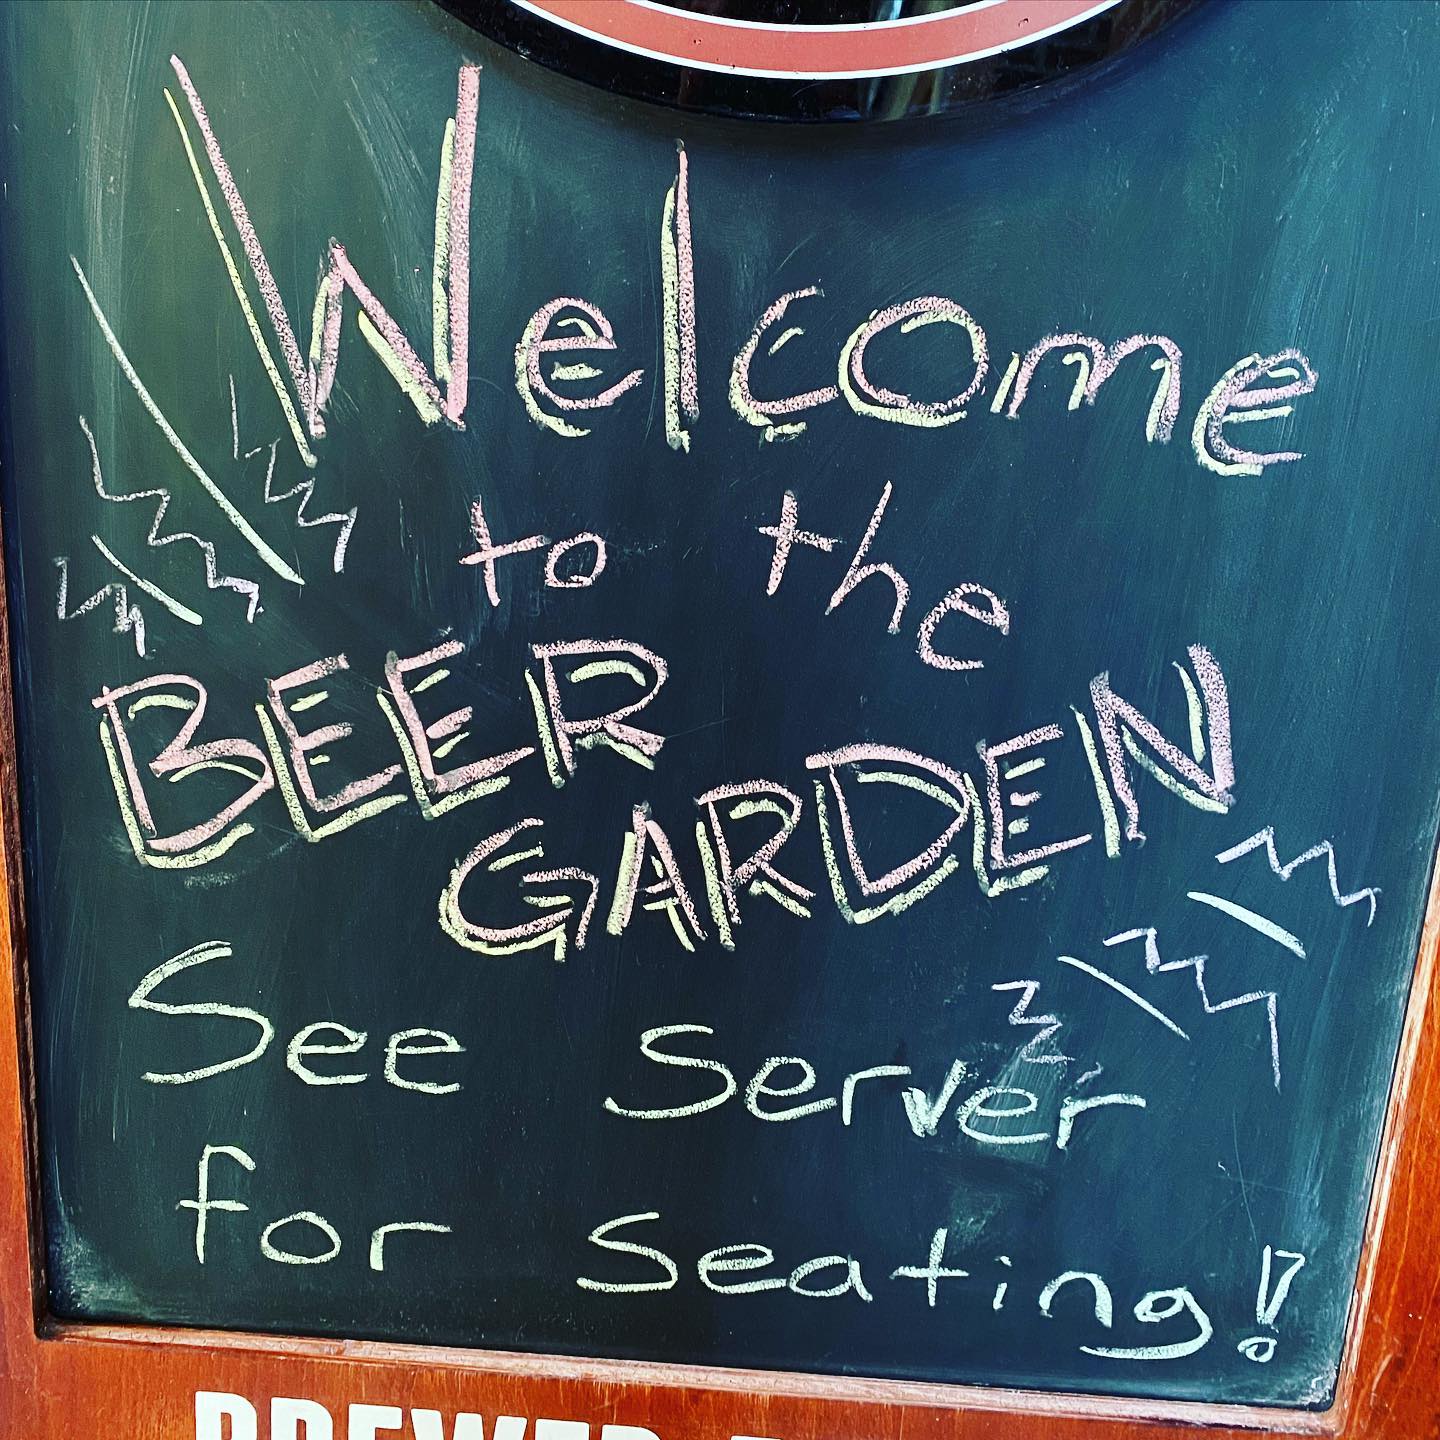 Welcome
to the
BEER
GARDEN
See Server
for Seating!